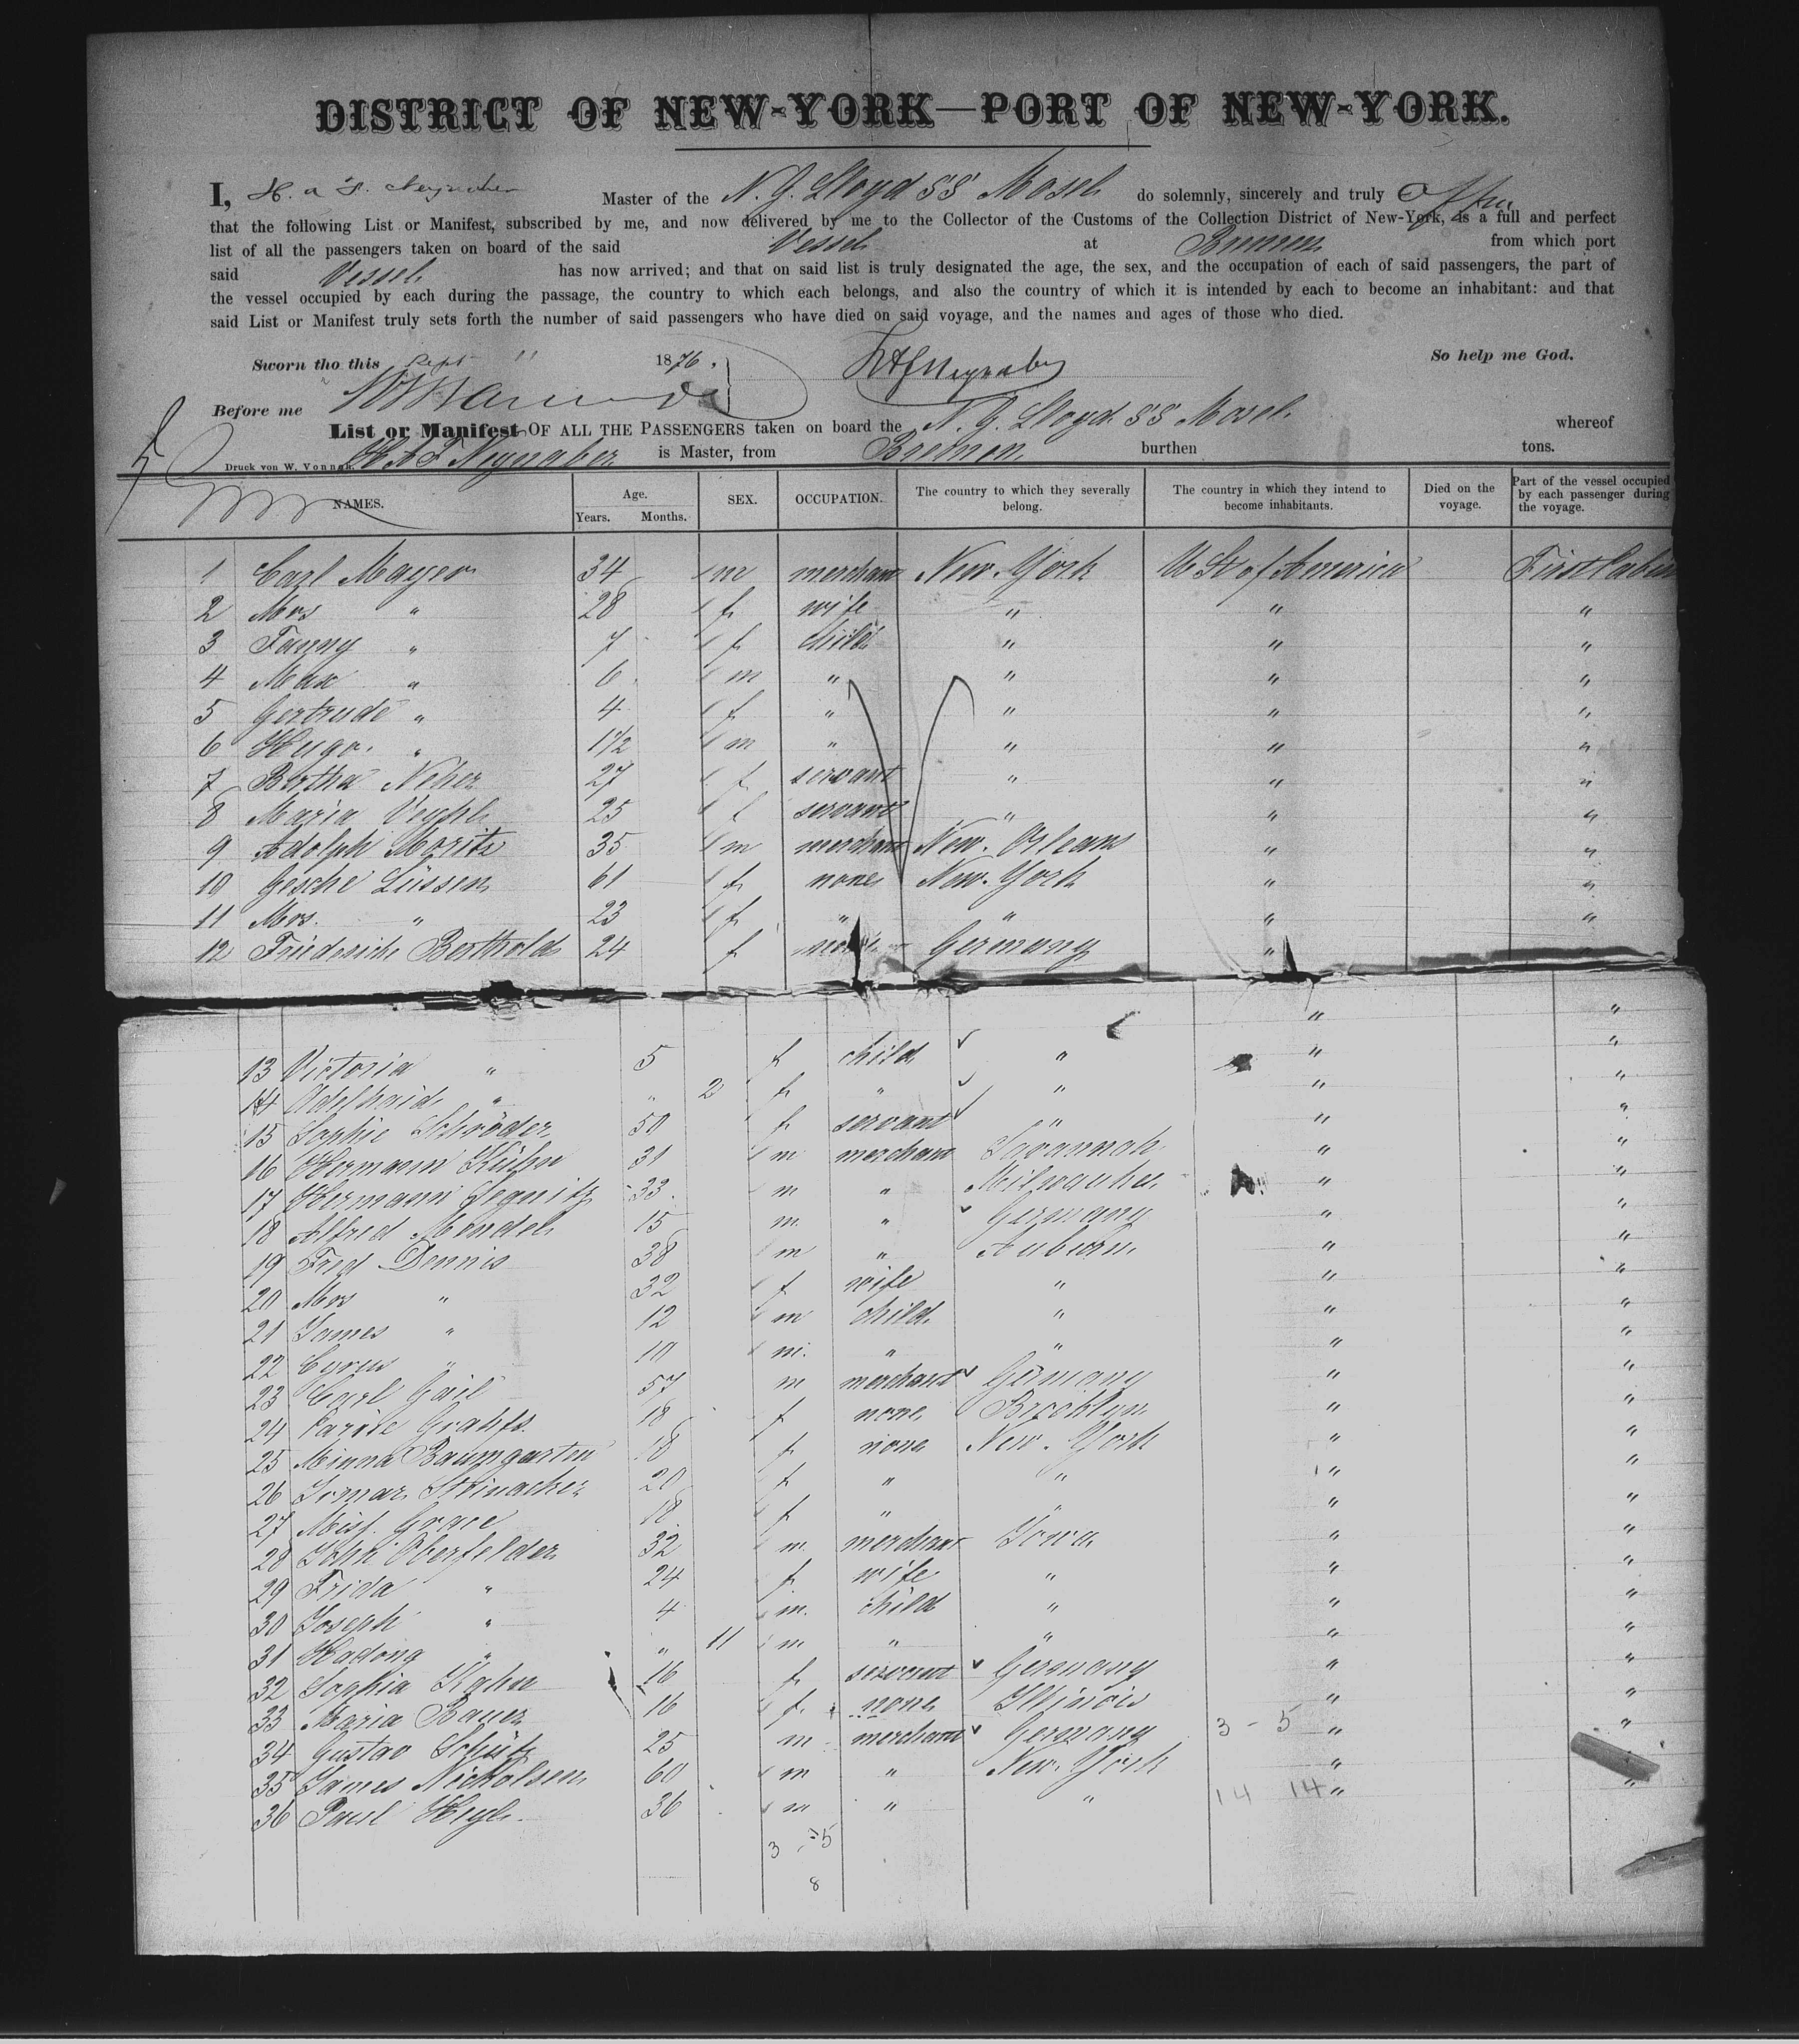 DISTRICT OF NEW-YORK—PORT OF NEW-YORK.
I, H. A. F. Neynaber Master of the N. G. Lloyd SS Mosel do solemnly, sincerely and truly
that the following List or Manifest, subscribed by me, and now delivered by me to the Collector of the Customs of the Collection District of New-York, is a full and perfect
list of all the passengers taken on board of the said Vessel at Bremen from which port
said Vessel has now arrived; and that on said list is truly designated the age, the sex, and the occupation of each of said passengers, the part of
the vessel occupied by each during the passage, the country to which each belongs, and also the country of which it is intended by each to become an inhabitant: and that
said List or Manifest truly sets forth the number of said passengers who have died on said voyage, and the names and ages of those who died.
Sworn tho this Sept 11 1876. HAFNeynaber So help me God.
Before me
List or Manifest OF ALL THE PASSENGERS taken on board the N. G. Lloyd SS Mosel whereof
Druck von W. Vonnah. H A F Neynaber is Master, from Bremen burthen tons.
NAMES. Age. Years. Months. SEX. OCCUPATION. The country to which they severally belong. The country in which they intend to become inhabitants. Died on the voyage. Part of the vessel occupied by each passenger during the voyage.
1 Carl Mayer 34 m merchant New-York U St of America First Cabin
2 Mrs " 28 f wife " " "
3 Fanny " 7 f child " " "
4 Max " 6 m " " " "
5 Gertrude " 4 f " " " "
6 Hugo " 1 1/2 m " " " "
7 Bertha Neher 27 f servant " " "
8 Maria 25 f servant " " "
9 Adolph Moritz 35 m merchant New-Orleans " "
10 Gesche Lüssen 61 f none New-York " "
11 Mrs. " 23 f " " " "
12 Friederiche Berthold 24 f none Germany " "
13 Victoria " 5 f child " " "
14 Adelhaid " " 2 f " " " "
15 Sophie Schröder 50 f servant " " "
16 Hermann Kühn 31 m merchant Savannah " "
17 Hermann Segnitz 33 m " Milwaukee " "
18 Alfred Mendel 15 m " Germany " "
19 Fred Dennis 38 m " Auburn " "
20 Mrs " 32 f wife " " "
21 James " 12 m child " " "
22 Cyrus " 10 m. " " " "
23 Carl Gail 57 m merchant Germany " "
24 18 f none Brooklyn " "
25 Minna Baumgarten 18 f none New-York " "
26 20 f " " " "
27 Miss. Grace 18 f " " " "
28 Oberfelder 32 m merchant Iowa " "
29 Frida " 24 f wife " " "
30 Joseph " 4 m. child " " "
31 " " 11 m " " " "
32 Sophia Kahn 16 f servant Germany " "
33 Maria Bauer 16 f. none Illinois " "
34 Gustav Schütz 25 m merchant Germany 3 - 5 " "
35 James Nicholsen 60 m " New-York " "
36 Paul Heyl 36 m " " 14 14 " "
3 - 5
8